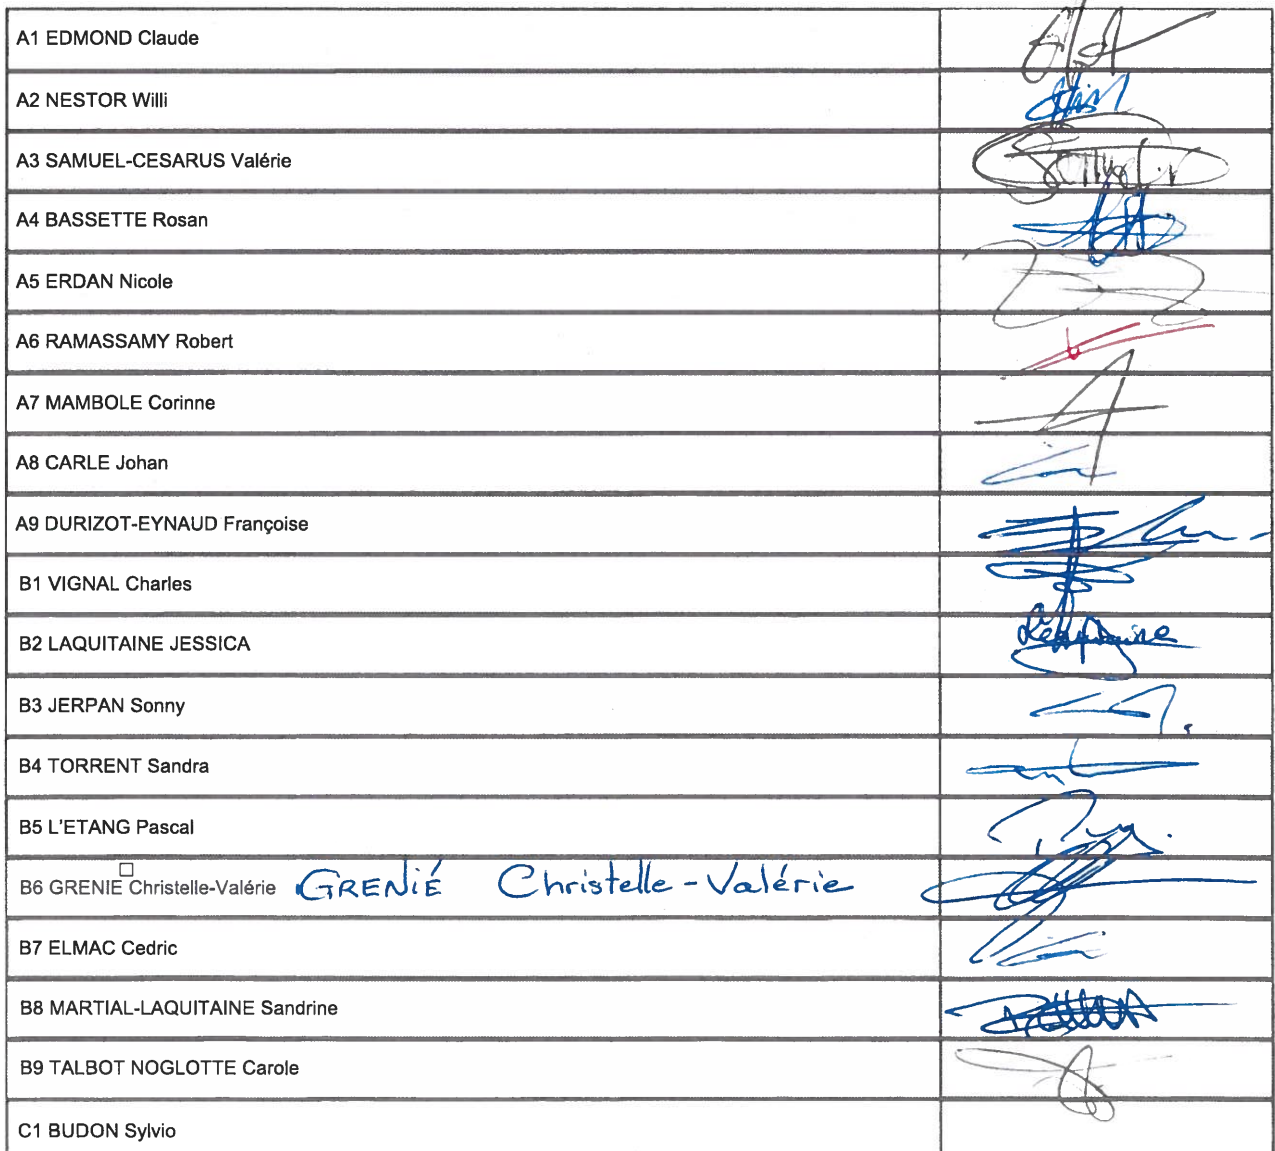 A1 EDMOND Claude
A2 NESTOR Willi
A3 SAMUEL-CESARUS Valérie
A4 BASSETTE Rosan
A5 ERDAN Nicole
A6 RAMASSAMY Robert
A7 MAMBOLE Corinne
A8 CARLE Johan
A9 DURIZOT-EYNAUD Françoise
B1 VIGNAL Charles
B2 LAQUITAINE JESSICA
B3 JERPAN Sonny
B4 TORRENT Sandra
B5 L'ETANG Pascal
B6 GRENIE Christelle-Valérie GRENIÉ Christelle-Valérie
B7 ELMAC Cedric
B8 MARTIAL-LAQUITAINE Sandrine
B9 TALBOT NOGLOTTE Carole
C1 BUDON Sylvio